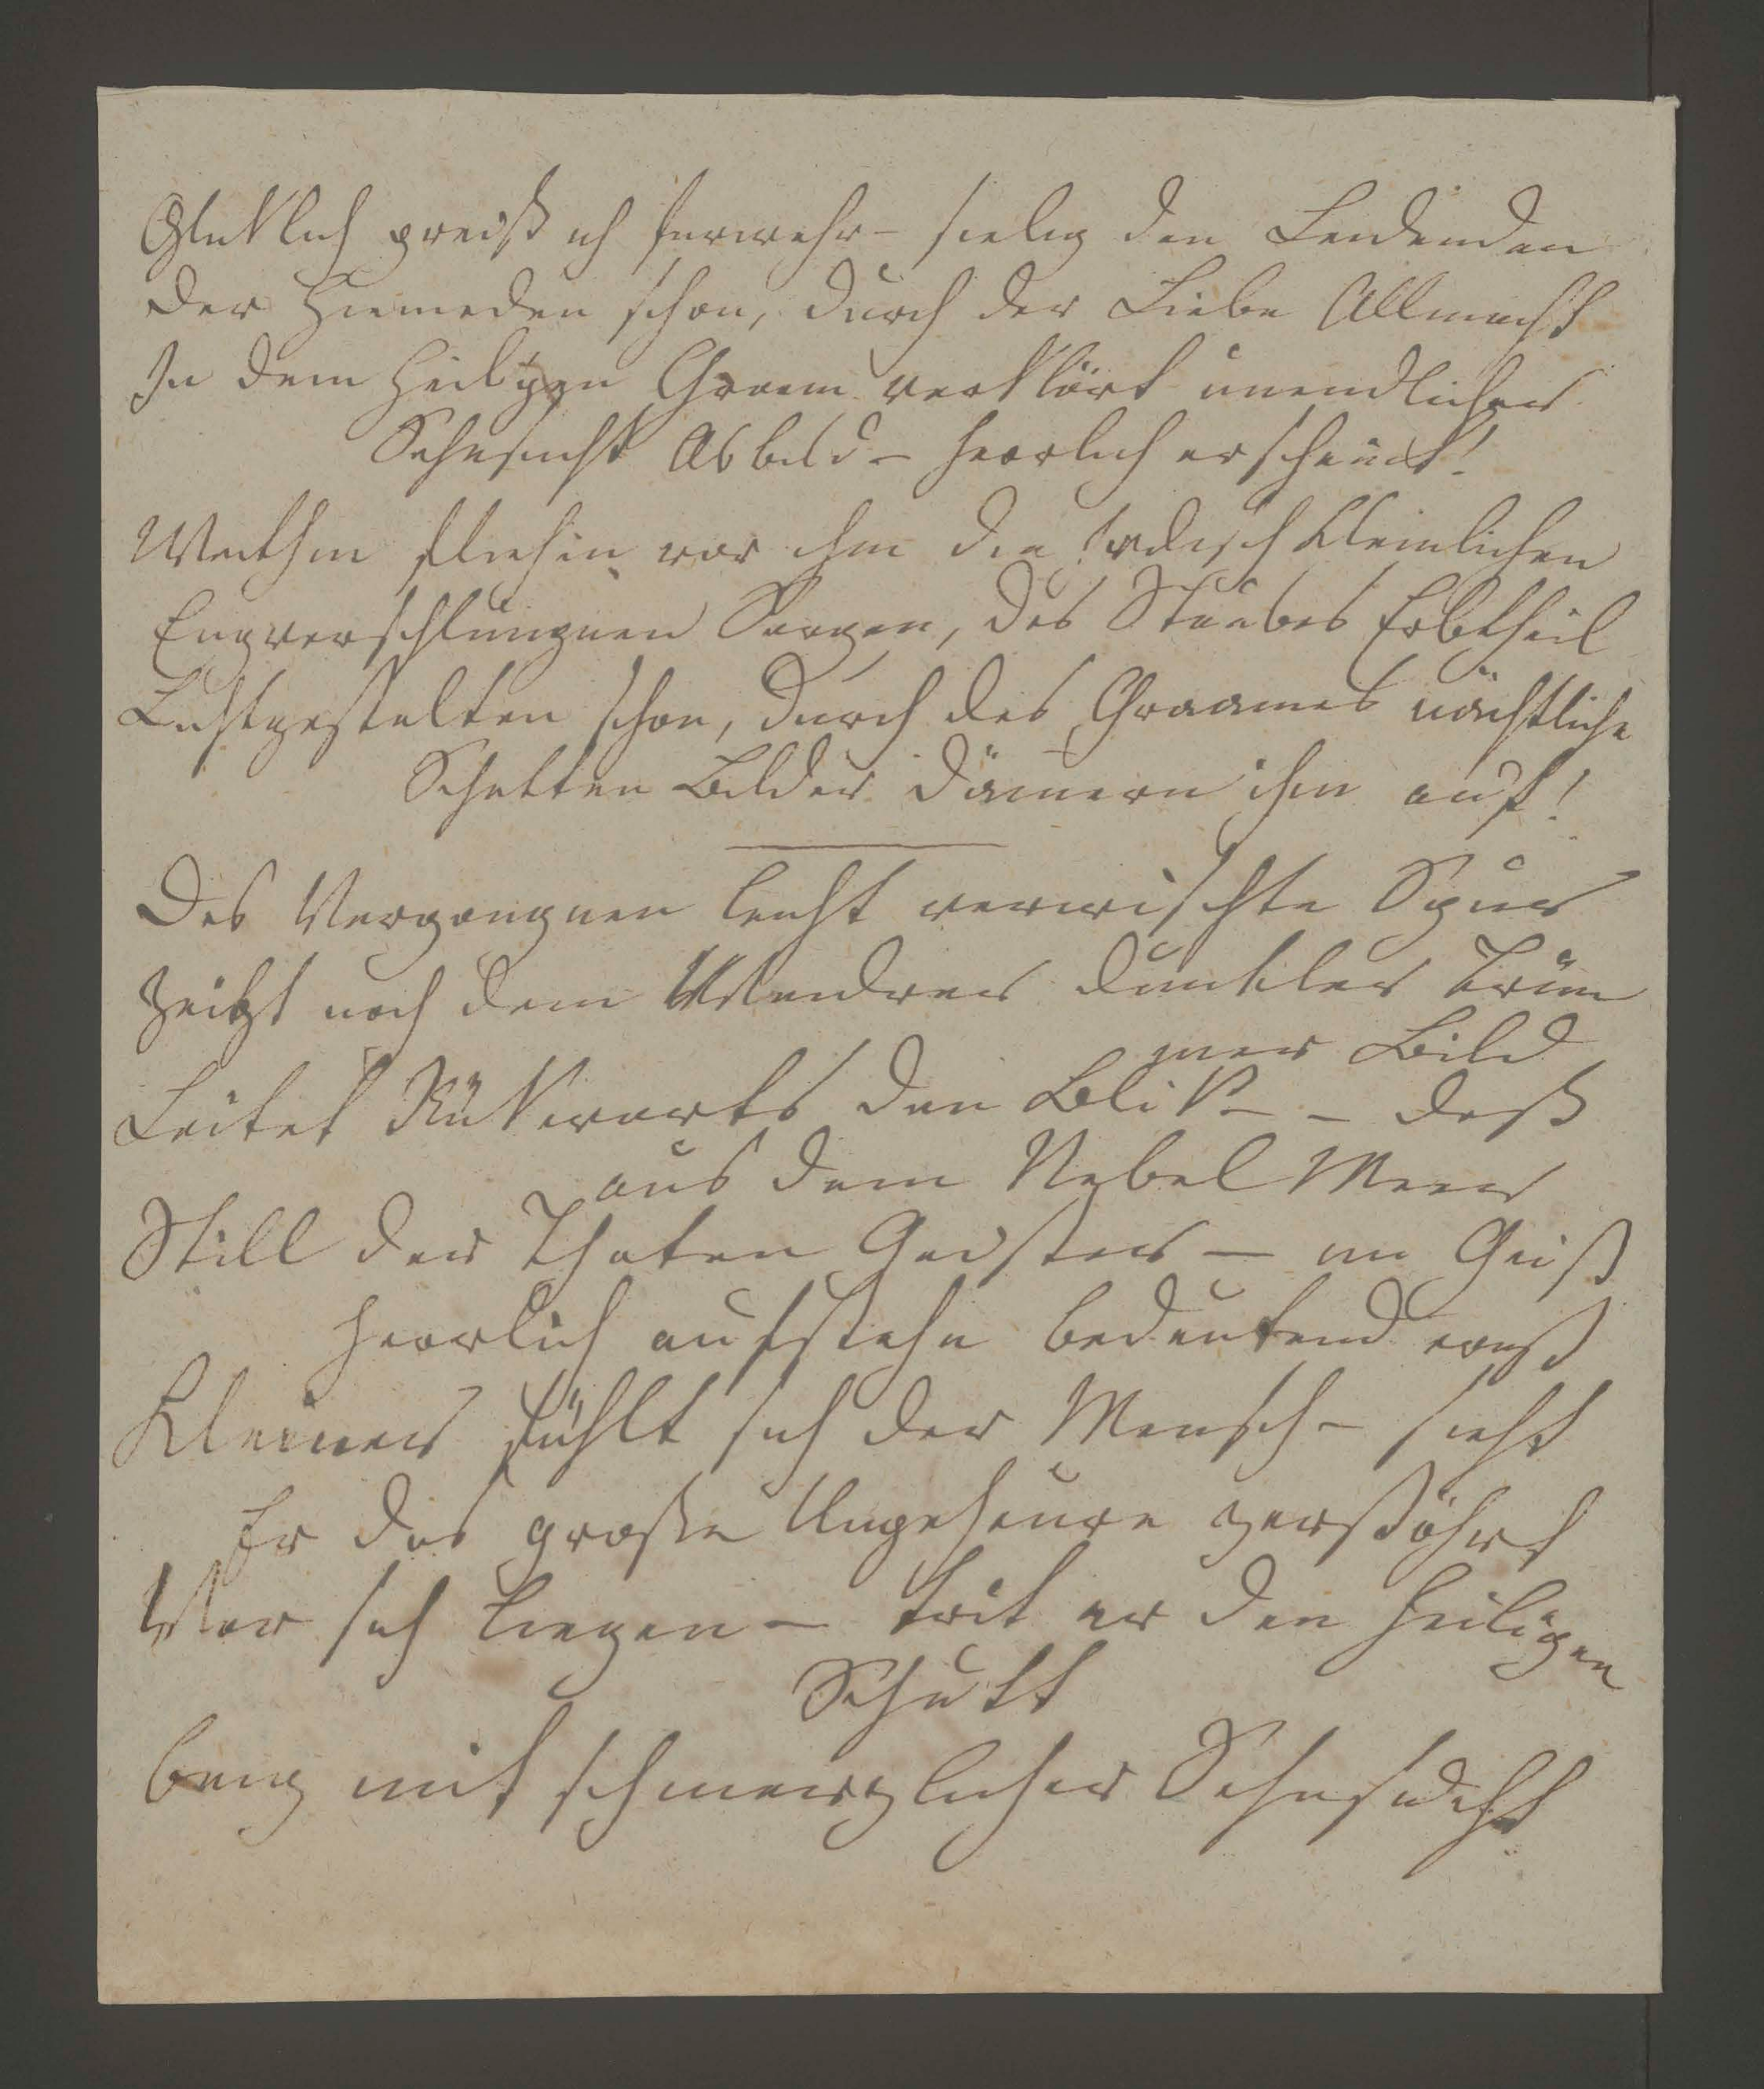 Glüklich preiß ich furwahr – seelig den Leidenden
Der hienieden schon, durch der Liebe Allmacht
In dem heiligen Graam verklärt unendlicher
Sehnsucht Abbild – herrlich erscheint!
Weithin fliehin vor ihm die Irdisch kleinlichen
Engverschlungnen Sorgen, des Staubes Erbtheil
Lichtgestalten schon, durch des Graames nächtliche
Schatten Bilder dämern ihm auf!
Des Vergangnen leicht verwischte Spur
Zeigt noch dem Wandrer dunkler Trüm
mer Bild
Leitet Rükwarts den Blik – – daß
aus dem Nebel Meer
Still der Thaten Geister – im Geiß
herrlich aufstehn bedeutend ernst
Kleiner fühlt sich der Mensch – sieht
Er das große Ungeheure zerstöhrt
Vor sich liegen – trit er den heiligen
Schutt
bang mit schmerzlicher Sehnsucht